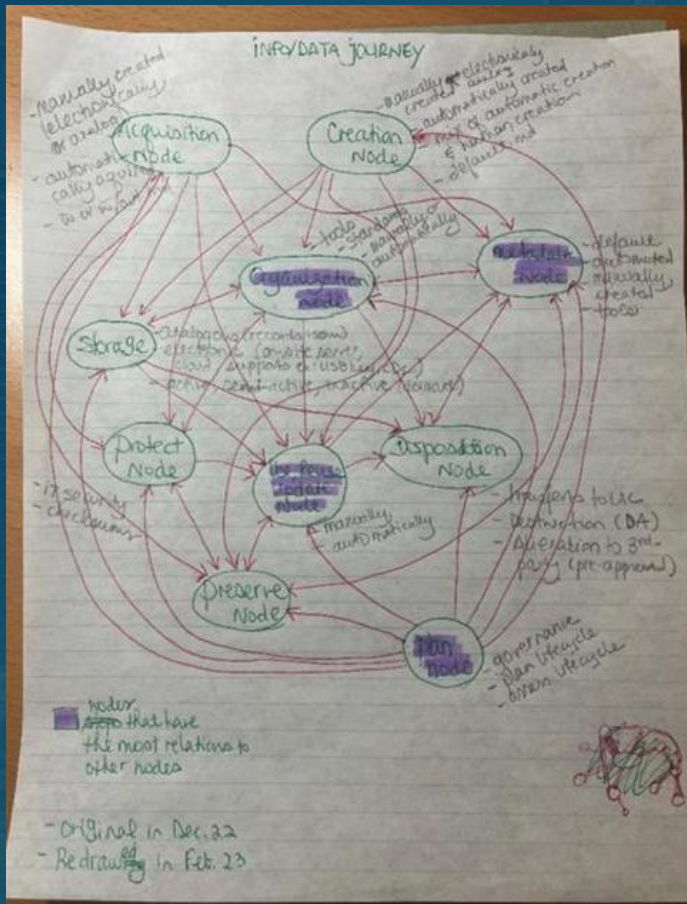 INFO/DATA JOURNEY
- manually created
(electronically
or analog
- automati-
cally aquired
Acquisition
Node
Creation
Node
- manually electronically
created analog
- automatically created
- mix of automatic creation
& human creation
- default md
- tools
- standards
- manually or
automatically
Organization
node
metadata
Node
- default
- automated
- manually
created
- tools
Storage
- analogous (records room)
- electronic (on-site server,
cloud, supports ex: usb key,
- active, semi-active, inactive
Protect
Node
- IT security
Use Reuse
Update
Node
- manually
- automatically
Disposition
Node
- transfers to LAC
- Destruction (DA)
- Alienation to 3rd
party (pre-approved)
Preserve
Node
Plan
Node
- governance
- plan lifecycle
- assess lifecycle
nodes
that have
the most relations to
other nodes
- Original in Dec. 22
- Redrawed in Feb. 23